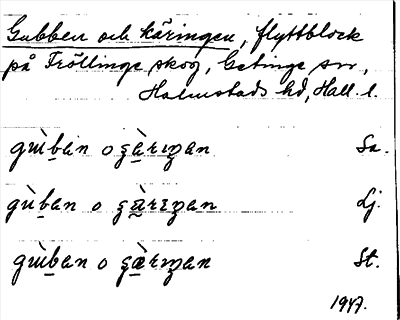 Gubben och käringen, flyttblock
på Tröllinge skog, Getinge sn,
Halmstads hd, Hall. l.
gùbän o çä̀rıŋan Sa.
gùban o çä̀rıŋan Lj.
gùban o çæ̀rıŋan St.
1947.